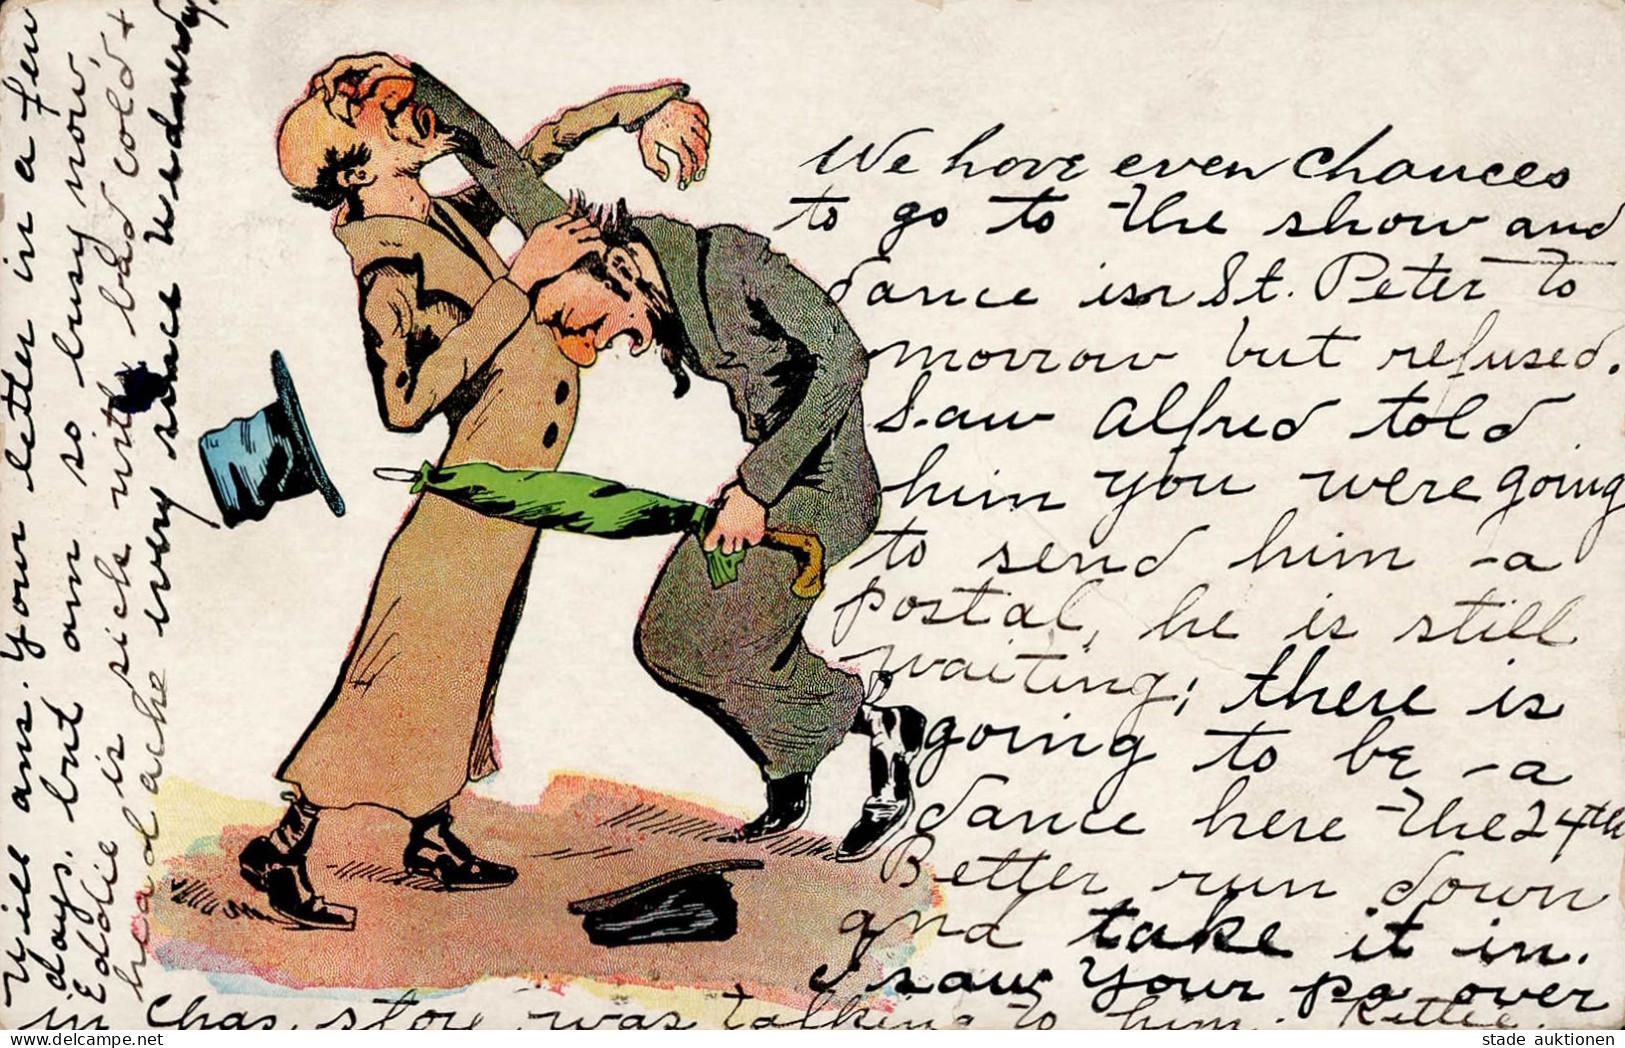 We have even chances
to go to the show and
dance in St. Peter to
morrow but refused.
Saw Alfred told
him you were going
to send him - a
postal, he is still
waiting; there is
going to be - a
dance here the 24th
Better run down
and take it in.
I saw your pa over
in Chas. store was talking to him. Kittie.
Will ans. your letter in a few
days. but am so busy now,
Eddie is sick with bad cold +
head ache every since Wednesday.
stade auktionen